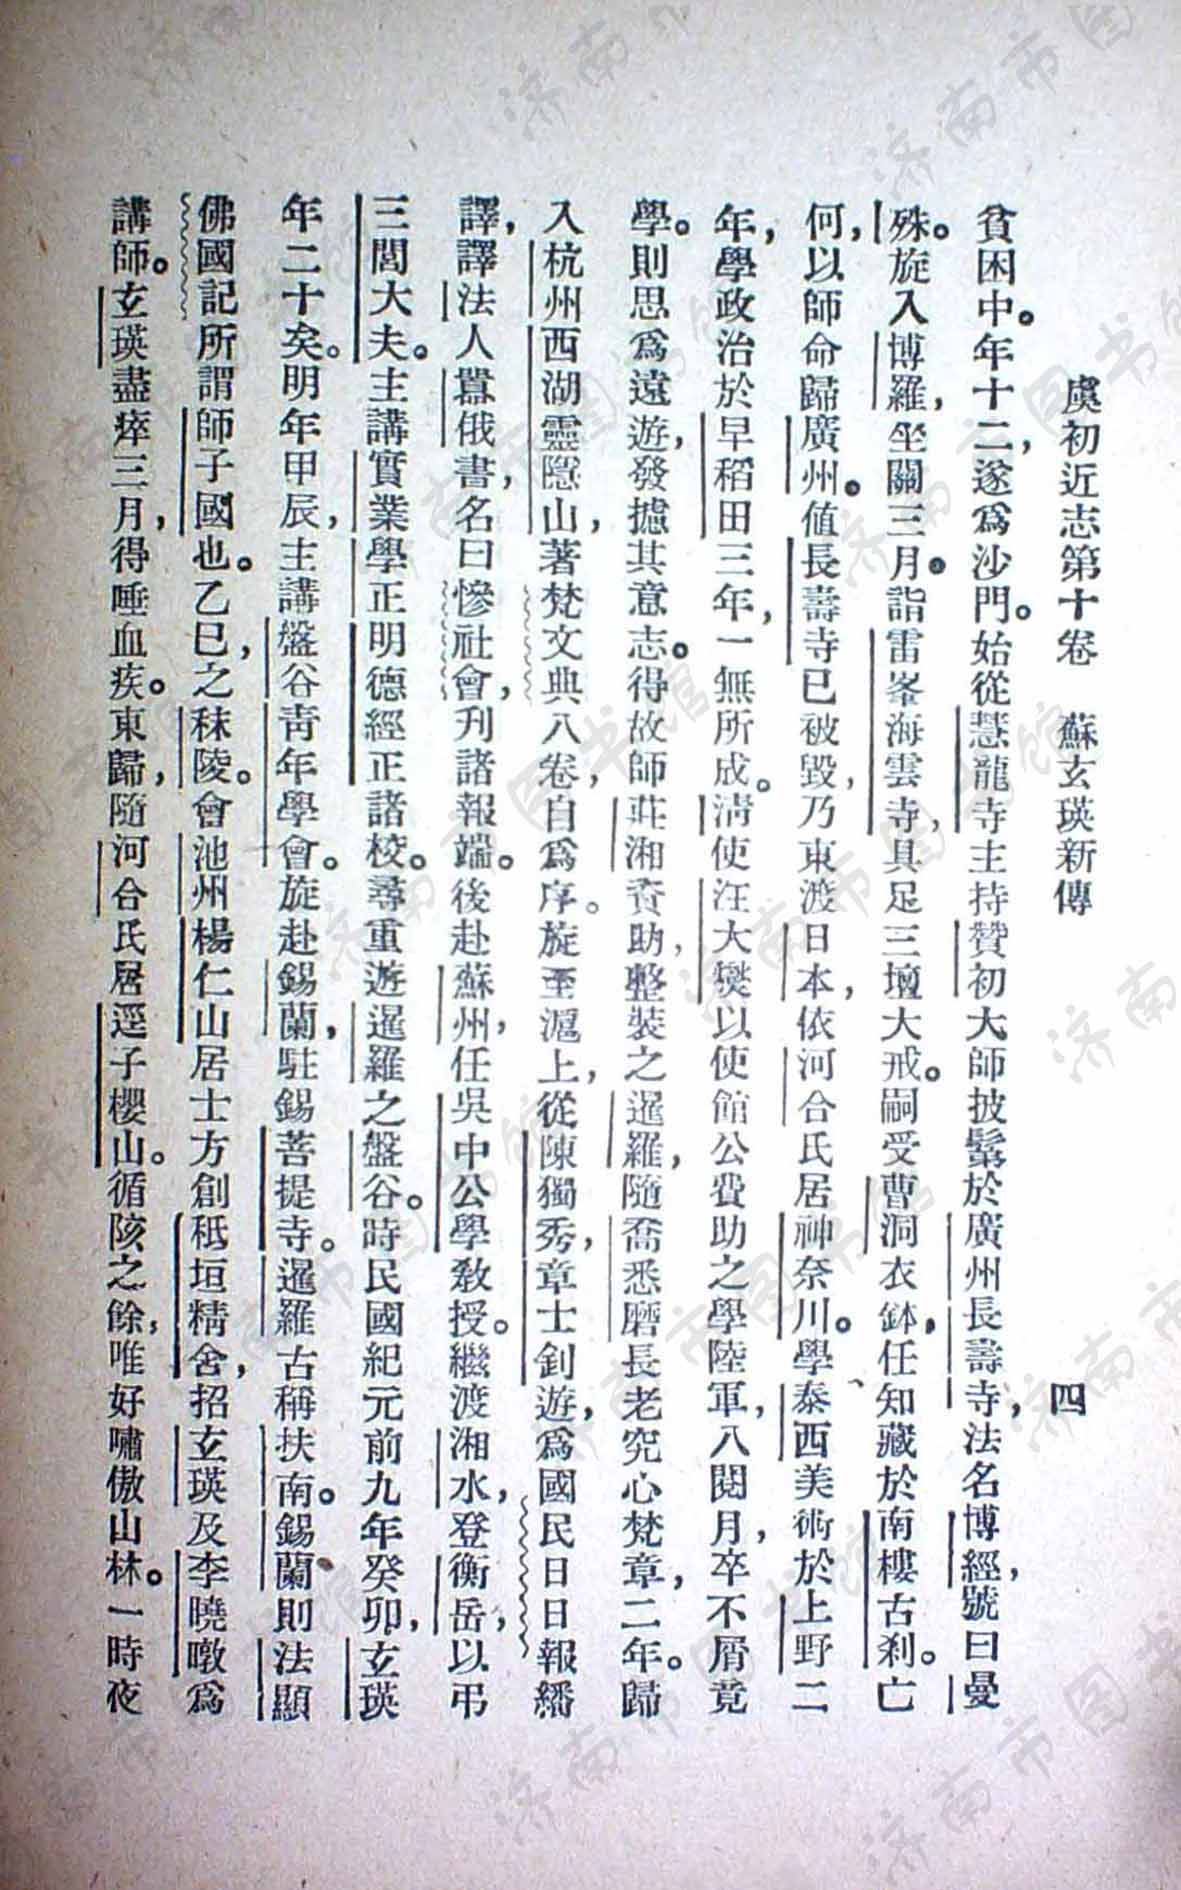 虞初近志第十卷　蘇玄瑛新傳　四
貧困中。年十二，遂爲沙門。始從慧龍寺主持贊初大師披鬀於廣州長壽寺，法名博經，號曰曼
殊。旋入博羅，坐關三月。詣雷峯海雲寺，具足三壇大戒。嗣受曹洞衣鉢，任知藏於南樓古刹。亡
何，以師命歸廣州。値長壽寺已被毀，乃東渡日本，依河合氏居神奈川。學泰西美術於上野二
年，學政治於早稻田三年，一無所成。淸使汪大燮以使館公費助之學陸軍，八閱月，卒不屑竟
學。學則思爲遠遊，發攄其意志。得故師莊湘賚助，整裝之暹羅，隨喬悉磨長老究心梵章，二年。歸
入杭州西湖靈隱山，著梵文典八卷，自爲序。旋至滬上，從陳獨秀，章士釗遊，爲國民日日報繙
譯，譯法人囂俄書，名曰慘社會，刋諸報端。後赴蘇州，任吳中公學教授。繼渡湘水，登衡岳，以弔
三閭大夫。主講實業學正明德經正諸校。尋重遊暹羅之盤谷。時民國紀元前九年癸卯，玄瑛
年二十矣。明年甲辰，主講盤谷靑年學會。旋赴錫蘭，駐錫菩提寺。暹羅古稱扶南。錫蘭則法顯
佛國記所謂師子國也。乙巳，之秣陵。會池州楊仁山居士方創秪垣精舍，招玄瑛及李曉暾爲
講師。玄瑛盡瘁三月，得唾血疾。東歸，隨河合氏居逕子櫻山。循陔之餘，唯好嘯傲山林。一時夜
济南市图书馆